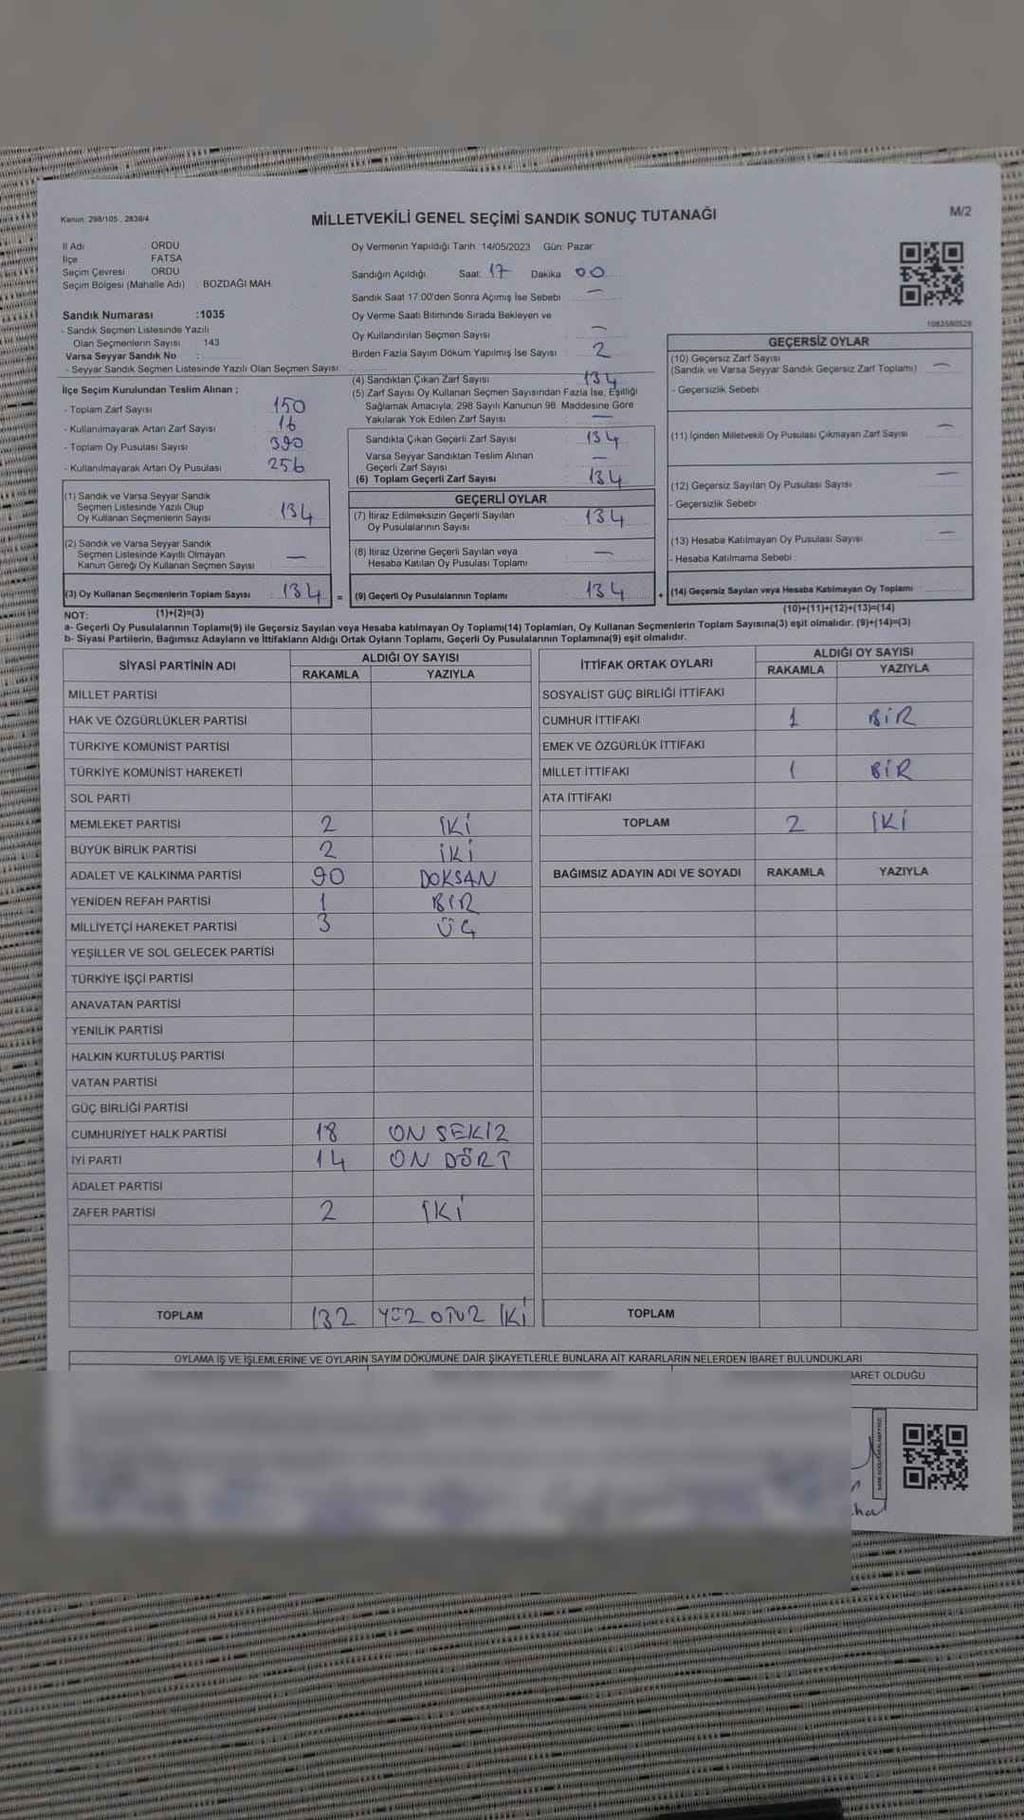 Kanun: 298/105 , 2839/4
MİLLETVEKİLİ GENEL SEÇİMİ SANDIK SONUÇ TUTANAĞI
M/2
İl Adı ORDU
İlçe FATSA
Seçim Çevresi ORDU
Seçim Bölgesi (Mahalle Adı) : BOZDAĞI MAH.
Oy Vermenin Yapıldığı Tarih: 14/05/2023 Gün: Pazar
Sandığın Açıldığı Saat: 17 Dakika 00
Sandık Saat 17:00'den Sonra Açımış İse Sebebi —
Oy Verme Saati Bitiminde Sırada Bekleyen ve
Oy Kullandırılan Seçmen Sayısı —
Birden Fazla Sayım Döküm Yapılmış İse Sayısı 2
Sandık Numarası :1035
- Sandık Seçmen Listesinde Yazılı
Olan Seçmenlerin Sayısı 143
Varsa Seyyar Sandık No :
- Seyyar Sandık Seçmen Listesinde Yazılı Olan Seçmen Sayısı:
İlçe Seçim Kurulundan Teslim Alınan ;
- Toplam Zarf Sayısı 150
- Kullanılmayarak Artan Zarf Sayısı 16
- Toplam Oy Pusulası Sayısı 390
- Kullanılmayarak Artan Oy Pusulası 256
(1) Sandık ve Varsa Seyyar Sandık
Seçmen Listesinde Yazılı Olup
Oy Kullanan Seçmenlerin Sayısı 134
(2) Sandık ve Varsa Seyyar Sandık
Seçmen Listesinde Kayıtlı Olmayan
Kanun Gereği Oy Kullanan Seçmen Sayısı —
(3) Oy Kullanan Seçmenlerin Toplam Sayısı 134 =
(4) Sandıktan Çıkan Zarf Sayısı 134
(5) Zarf Sayısı Oy Kullanan Seçmen Sayısından Fazla İse, Eşitliği
Sağlamak Amacıyla, 298 Sayılı Kanunun 98. Maddesine Göre
Yakılarak Yok Edilen Zarf Sayısı —
Sandıkta Çıkan Geçerli Zarf Sayısı 134
Varsa Seyyar Sandıktan Teslim Alınan
Geçerli Zarf Sayısı —
(6) Toplam Geçerli Zarf Sayısı 134
GEÇERLİ OYLAR
(7) İtiraz Edilmeksizin Geçerli Sayılan
Oy Pusulalarının Sayısı 134
(8) İtiraz Üzerine Geçerli Sayılan veya
Hesaba Katılan Oy Pusulası Toplamı —
(9) Geçerli Oy Pusulalarının Toplamı 134 +
1083580529
GEÇERSİZ OYLAR
(10) Geçersiz Zarf Sayısı
(Sandık ve Varsa Seyyar Sandık Geçersiz Zarf Toplamı) —
- Geçersizlik Sebebi
(11) İçinden Milletvekili Oy Pusulası Çıkmayan Zarf Sayısı —
(12) Geçersiz Sayılan Oy Pusulası Sayısı —
- Geçersizlik Sebebi
(13) Hesaba Katılmayan Oy Pusulası Sayısı —
- Hesaba Katılmama Sebebi :
(14) Geçersiz Sayılan veya Hesaba Katılmayan Oy Toplamı
(10)+(11)+(12)+(13)=(14)
NOT: (1)+(2)=(3)
a- Geçerli Oy Pusulalarının Toplamı(9) ile Geçersiz Sayılan veya Hesaba katılmayan Oy Toplamı(14) Toplamları, Oy Kullanan Seçmenlerin Toplam Sayısına(3) eşit olmalıdır. (9)+(14)=(3)
b- Siyasi Partilerin, Bağımsız Adayların ve İttifakların Aldığı Ortak Oyların Toplamı, Geçerli Oy Pusulalarının Toplamına(9) eşit olmalıdır.
SİYASİ PARTİNİN ADI ALDIĞI OY SAYISI
RAKAMLA YAZIYLA
MİLLET PARTİSİ
HAK VE ÖZGÜRLÜKLER PARTİSİ
TÜRKİYE KOMÜNİST PARTİSİ
TÜRKİYE KOMÜNİST HAREKETİ
SOL PARTİ
MEMLEKET PARTİSİ 2 İKİ
BÜYÜK BİRLİK PARTİSİ 2 İKİ
ADALET VE KALKINMA PARTİSİ 90 DOKSAN
YENİDEN REFAH PARTİSİ 1 BİR
MİLLİYETÇİ HAREKET PARTİSİ 3 ÜÇ
YEŞİLLER VE SOL GELECEK PARTİSİ
TÜRKİYE İŞÇİ PARTİSİ
ANAVATAN PARTİSİ
YENİLİK PARTİSİ
HALKIN KURTULUŞ PARTİSİ
VATAN PARTİSİ
GÜÇ BİRLİĞİ PARTİSİ
CUMHURİYET HALK PARTİSİ 18 ON SEKİZ
İYİ PARTİ 14 ON DÖRT
ADALET PARTİSİ
ZAFER PARTİSİ 2 İKİ
TOPLAM 132 YÜZ OTUZ İKİ
İTTİFAK ORTAK OYLARI ALDIĞI OY SAYISI
RAKAMLA YAZIYLA
SOSYALİST GÜÇ BİRLİĞİ İTTİFAKI
CUMHUR İTTİFAKI 1 BİR
EMEK VE ÖZGÜRLÜK İTTİFAKI
MİLLET İTTİFAKI 1 BİR
ATA İTTİFAKI
TOPLAM 2 İKİ
BAĞIMSIZ ADAYIN ADI VE SOYADI RAKAMLA YAZIYLA
TOPLAM
OYLAMA İŞ VE İŞLEMLERİNE VE OYLARIN SAYIM DÖKÜMÜNE DAİR ŞİKAYETLERLE BUNLARA AİT KARARLARIN NELERDEN İBARET BULUNDUKLARI
BARET OLDUĞU